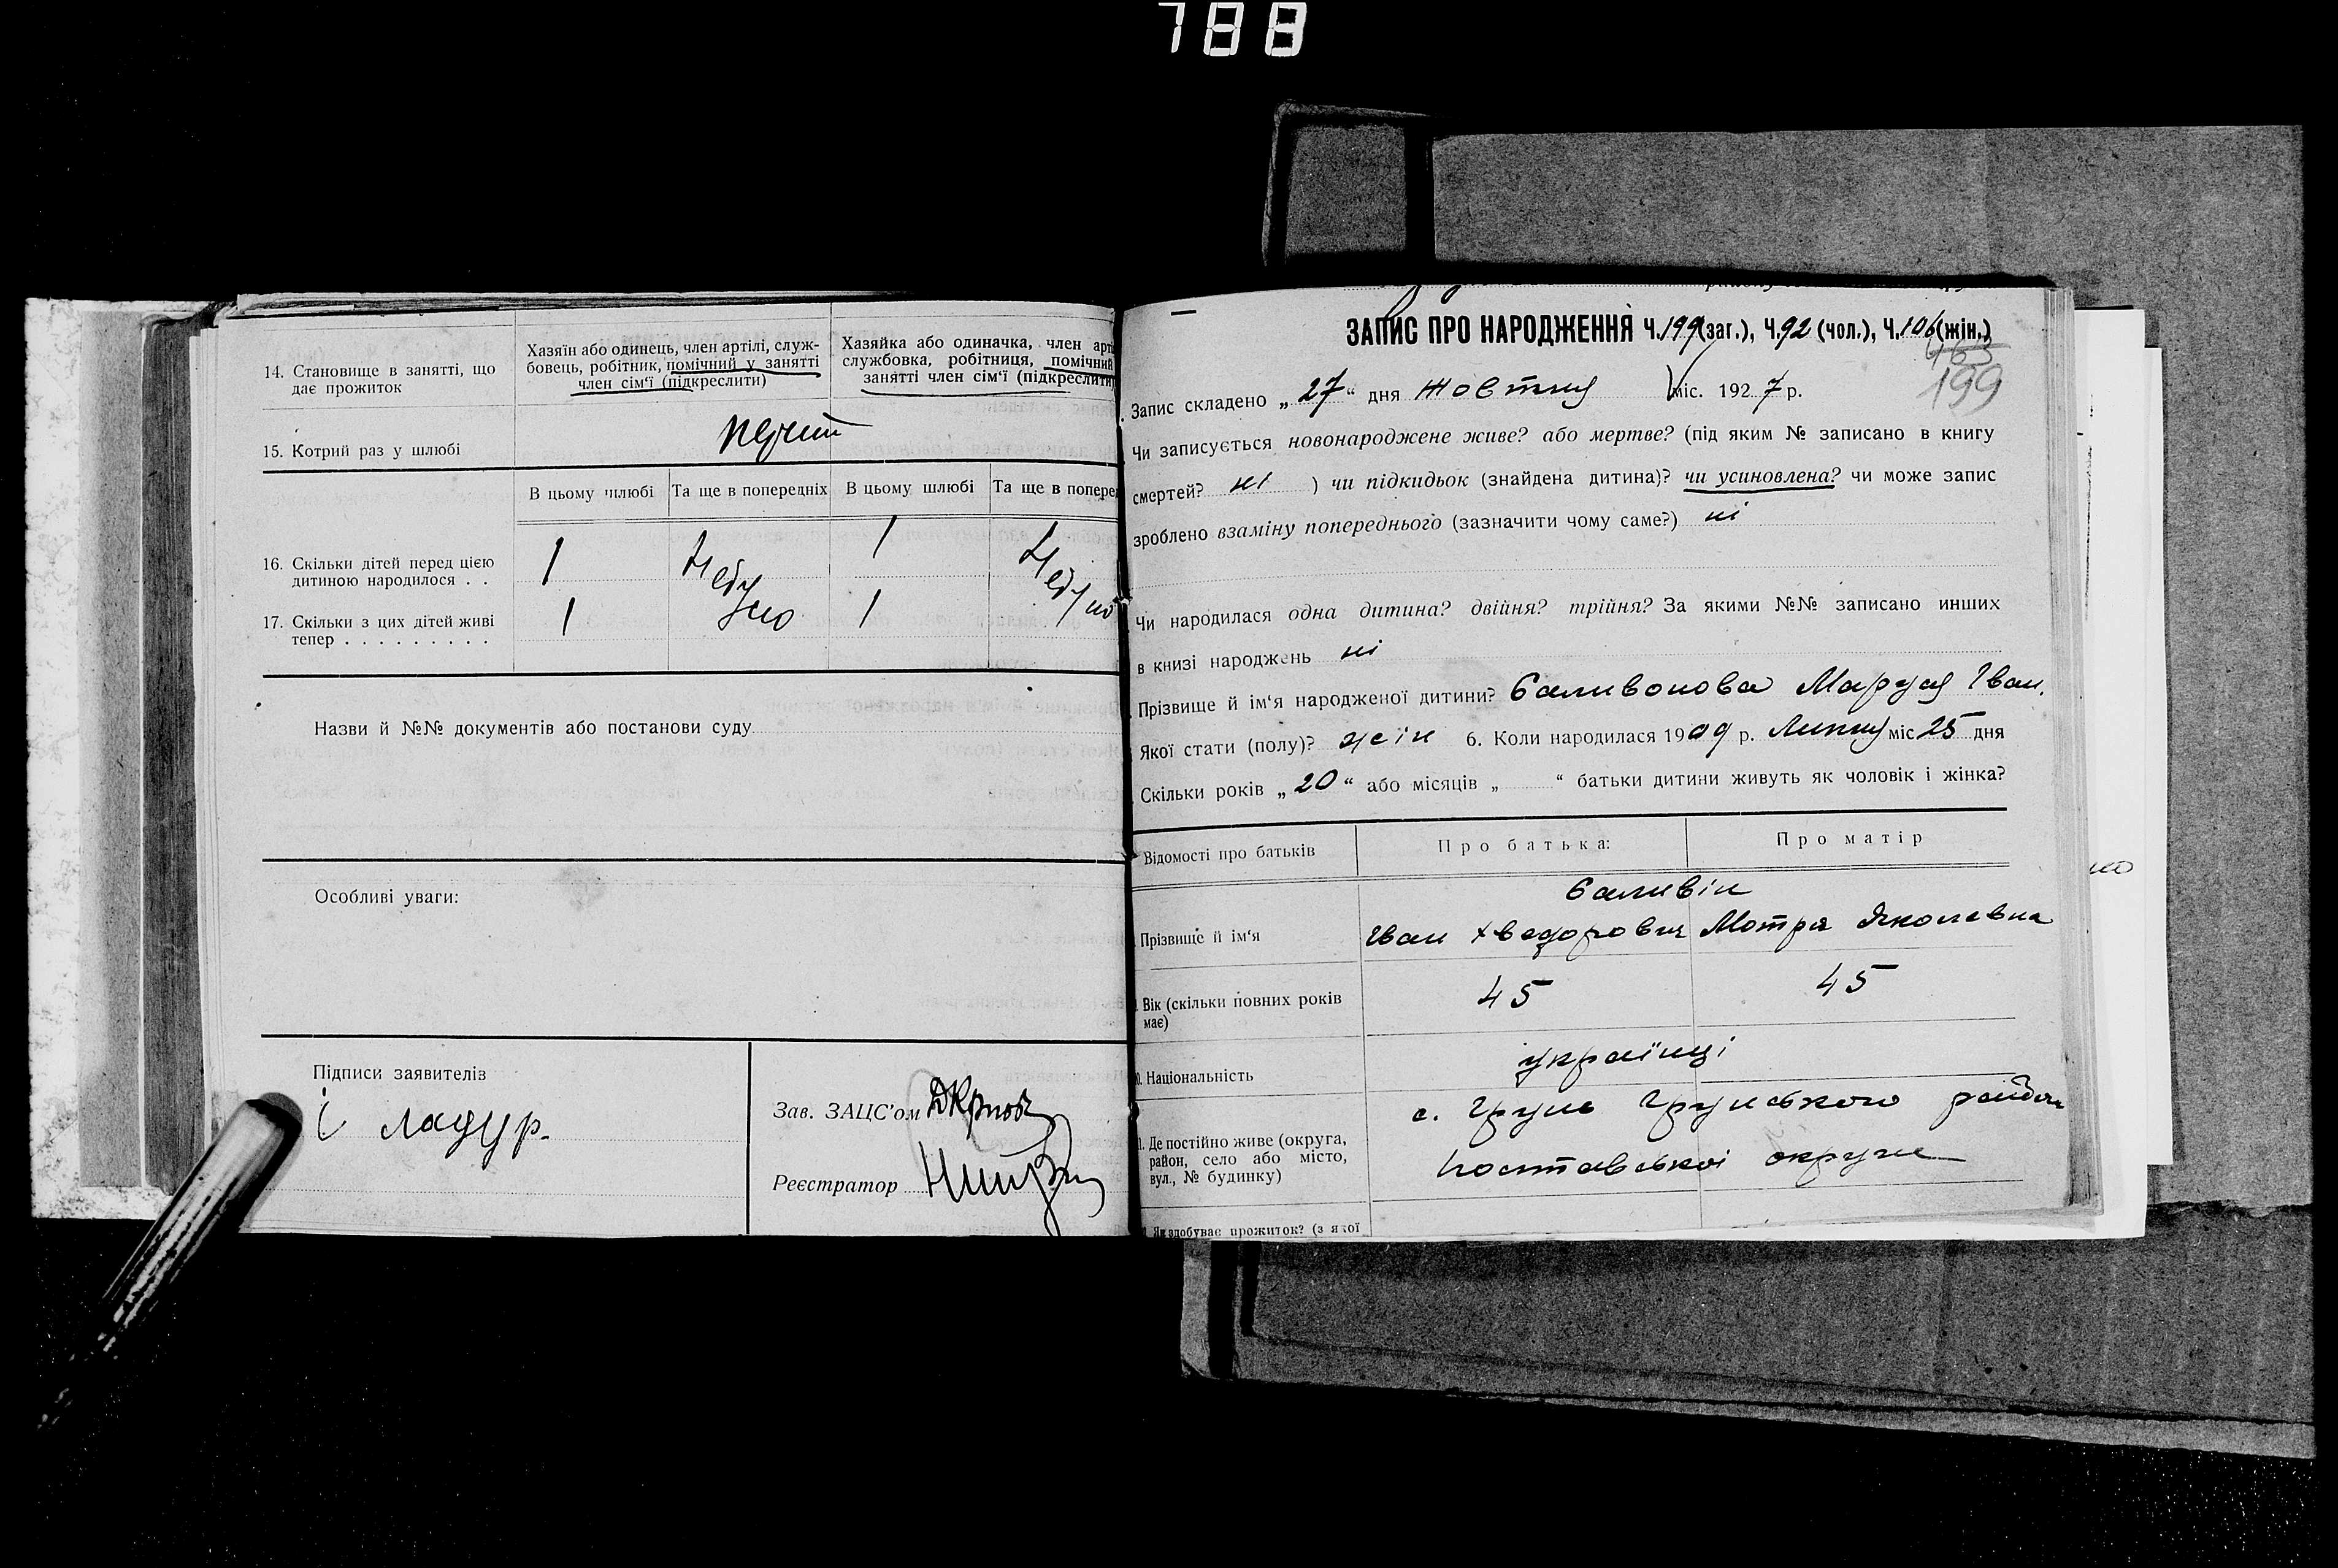 788
14. Становище в занятті, що дає прожиток
Хазяїн або одинець, член артілі, служ-
бовець, робітник, помічний у занятті
член сім'ї (підкреслити)
Хазяйка або одиначка, член арті
службовка, робітниця, помічний
занятті член сім'ї (підкреслити)
15. Котрий раз у шлюбі
перший
В цьому шлюбі Та ще в попередніх В цьому шлюбі Та ще в попере
16. Скільки дітей перед цією
дитиною народилося . .
1 Не було 1 Не було
17. Скільки з цих дітей живі
тепер . . . . . . . . .
1 1
Назви й №№ документів або постанови суду
Особливі уваги:
Підписи заявителів
Зав. ЗАЦС'ом
Реєстратор
ЗАПИС ПРО НАРОДЖЕННЯ Ч. 199 (заг.), Ч. 92 (чол.), Ч. 106 (жін.)
463
199
Запис складено „27“ дня Жовтня міс. 1927 р.
Чи записується новонароджене живе? або мертве? (під яким № записано в книгу
смертей? ні ) чи підкидьок (знайдена дитина)? чи усиновлена? чи може запис
зроблено взаміну попереднього (зазначити чому саме?) ні
Чи народилася одна дитина? двійня? трійня? За якими №№ записано инших
в книзі народжень ні
Прізвище й ім'я народженої дитини? Саливонова Маруся Іван.
Якої стати (полу)? жін 6. Коли народилася 1909 р. Липня міс 25 дня
Скільки років „20“ або місяців „ “ батьки дитини живуть як чоловік і жінка?
Відомості про батьків
Про батька:
Про матір
Саливін
Прізвище й ім'я
Іван Хведорович Мотря Яколевна
Вік (скільки повних років
має)
45 45
Національність
українці
Де постійно живе (округа,
район, село або місто,
вул., № будинку)
с. Грунь Грунського району
Полтавської округи
Як здобуває прожиток? (з якої